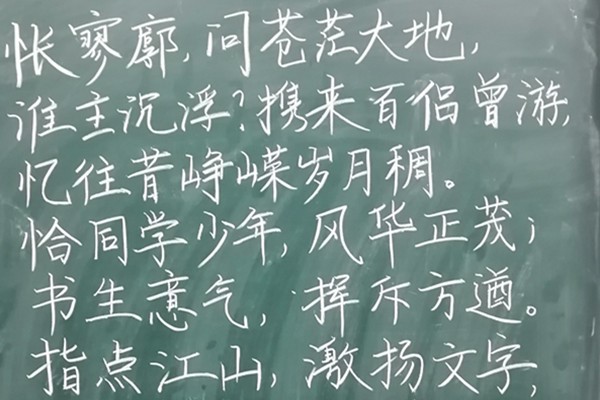 怅寥廓,问苍茫大地,
谁主沉浮?携来百侣曾游,
忆往昔峥嵘岁月稠。
恰同学少年,风华正茂;
书生意气,挥斥方遒。
指点江山,激扬文字,